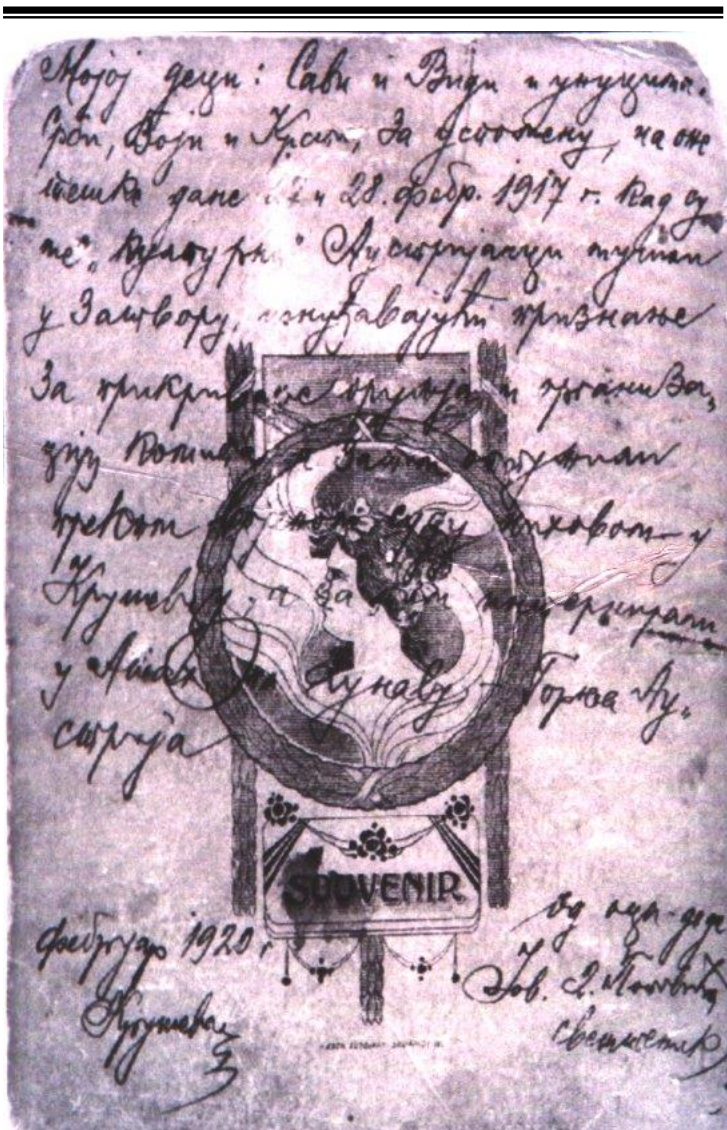 Мојој деци: Сави и Види и унуцима.
Срби, Воји и Крсти, За успомену, на оне
тешке дане 27 и 28. фебр. 1917 г. кад су
ме „културни“ Аустријанци мучили
у Затвору, изнуђавајући признање
За прикривање оружја и организа„
цију комита, и Затим оптужили
преком војном суду њиховом у
Крушевцу, а За тим интернирали
у Ашах на Дунаву – Горња Ау„
стрија
SOUVENIR
од оца-деде
фебруар 1920 г
Јов. Поповић
Крушевац
свештеник